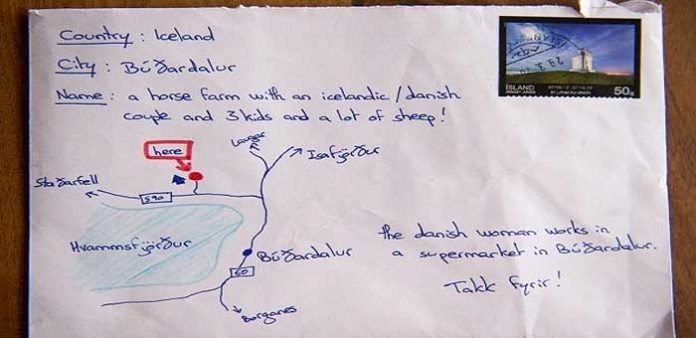 Country : Iceland
City : Búðardalur
Name : a horse farm with an icelandic/danish
couple and 3 kids and a lot of sheep!
here
Laugar
Isafjörður
Staðarfell
590
Hvammsfjörður
Búðardalur
60
Borganes
the danish woman works in
a supermarket in Búðardalur.
Takk fyrir!
ÍSLAND
50g